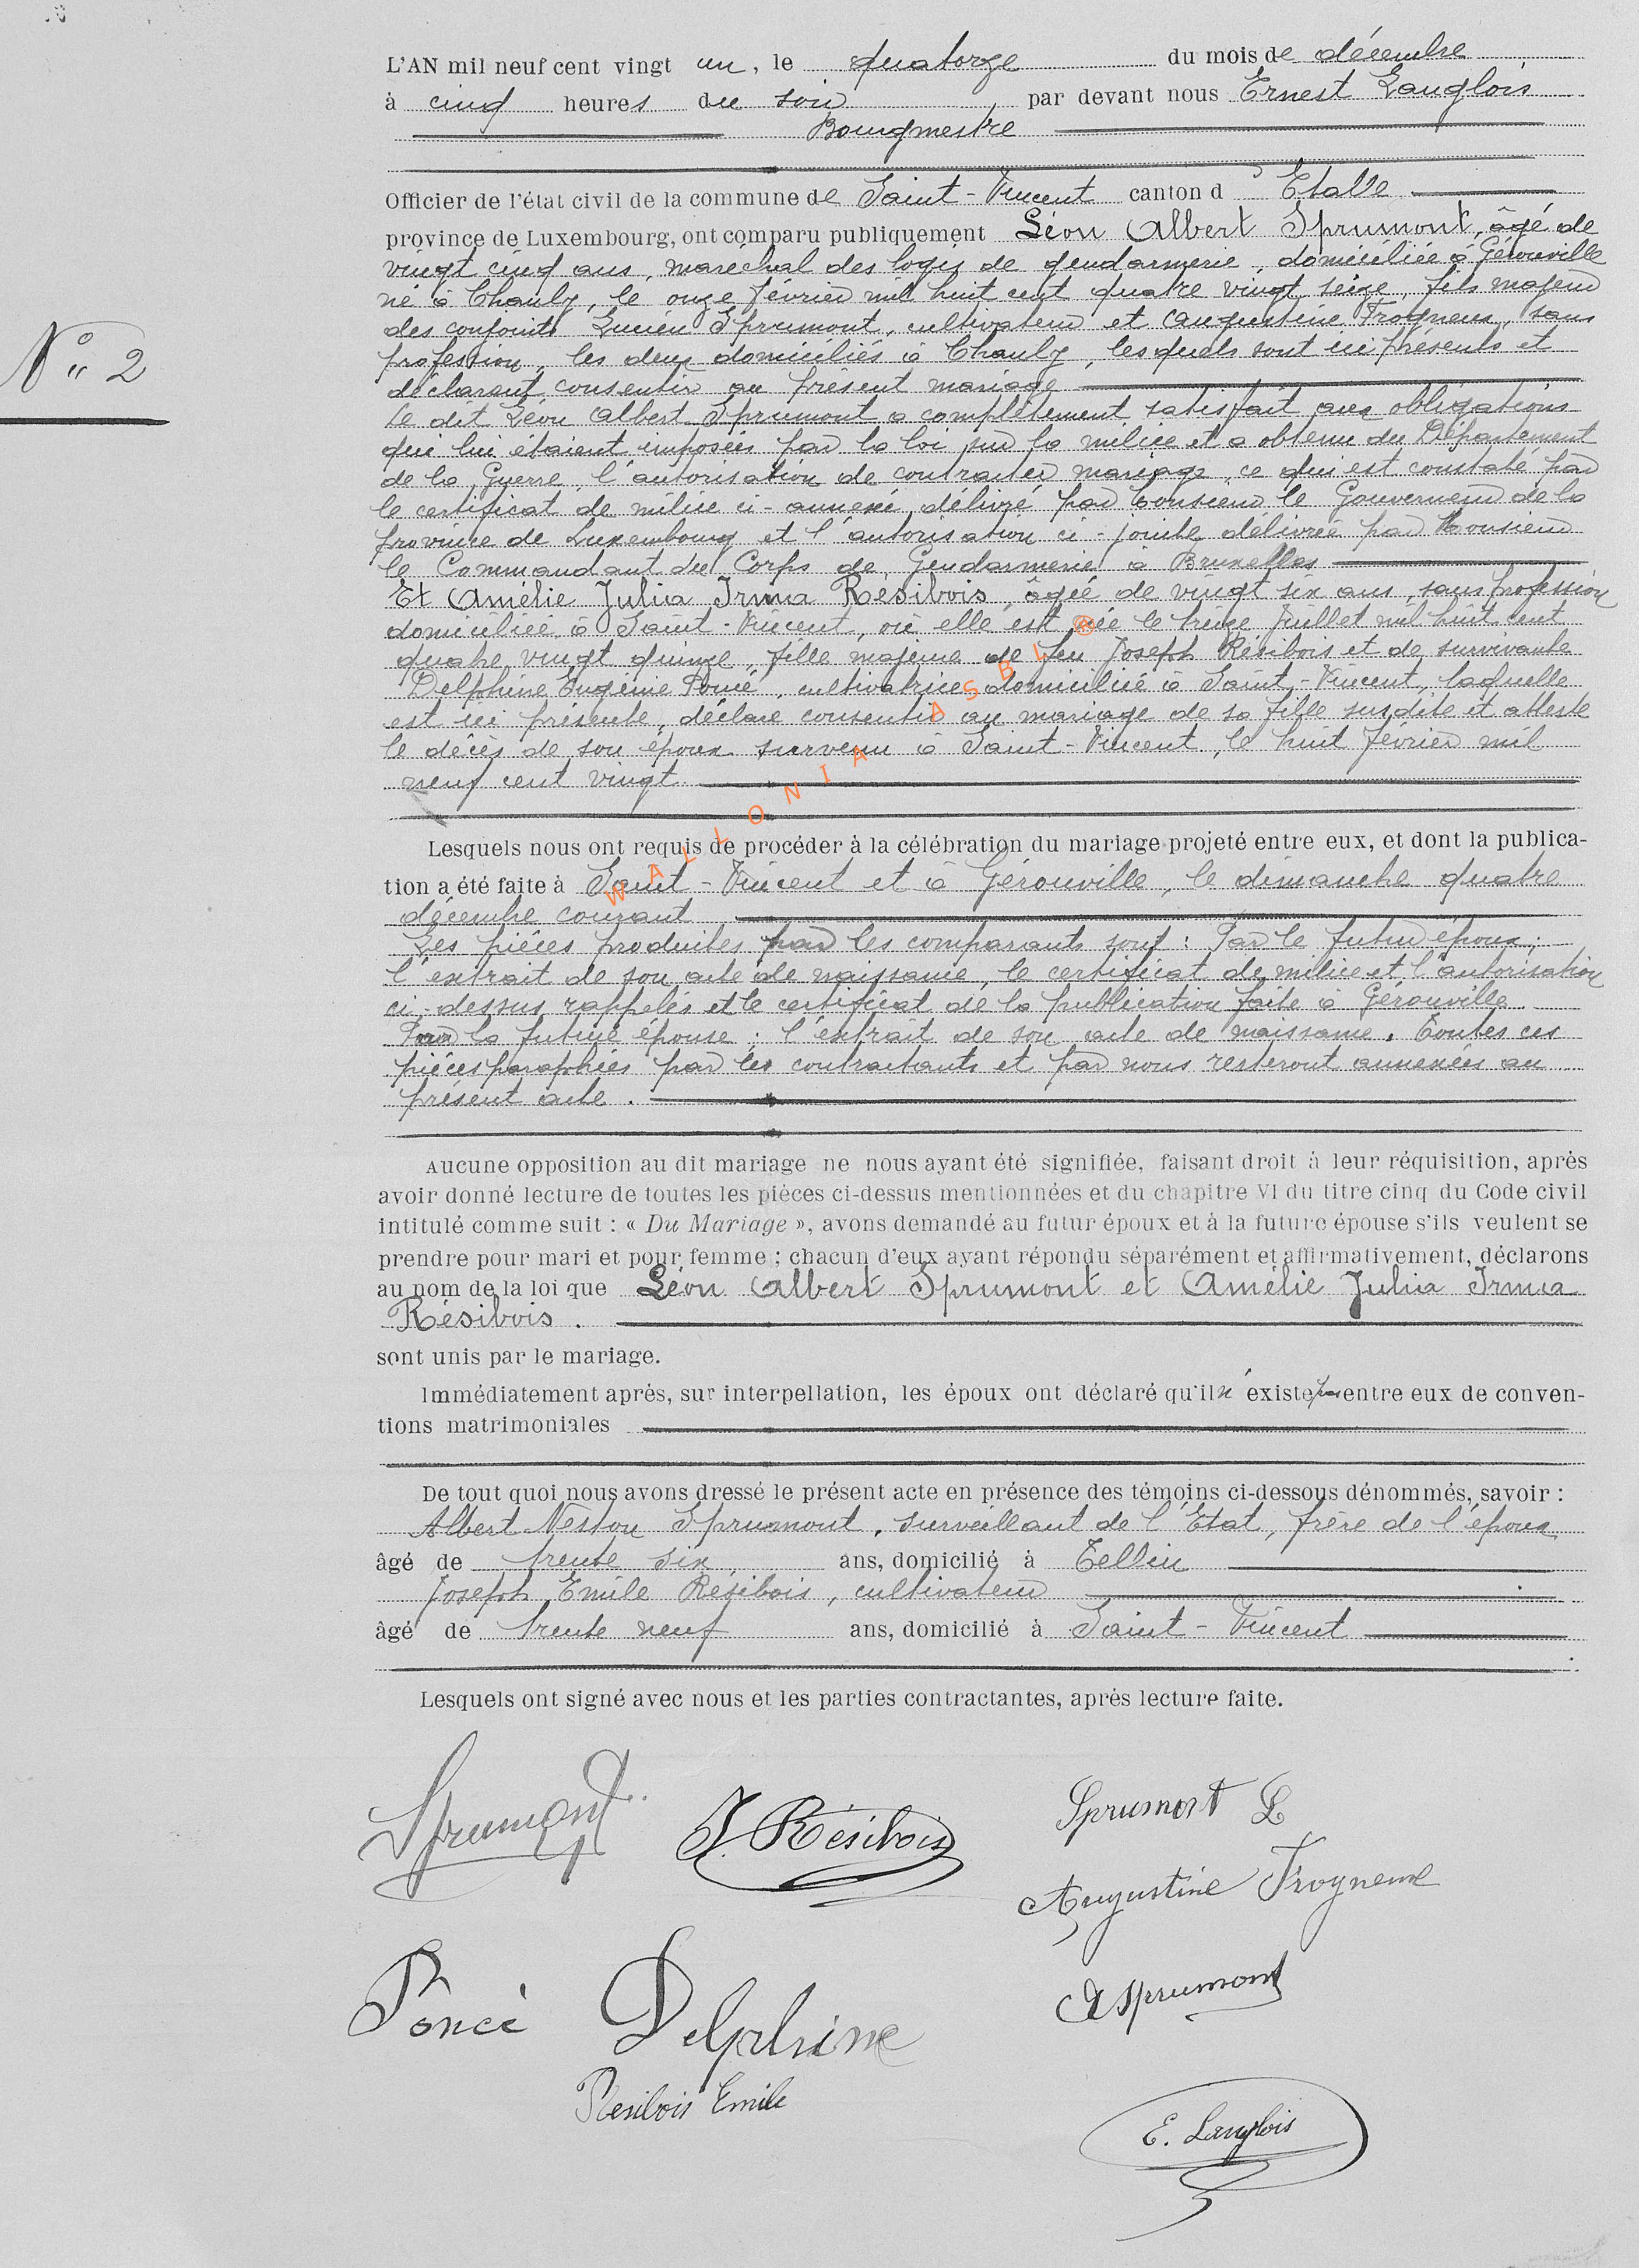 L'AN mil neuf cent vingt un, le quatorze du mois de décembre
à cinq heures du soir par devant nous Ernest Langlois
Bourgmestre
Officier de l'état civil de la commune de Saint-Vincent canton d'Etalle
province de Luxembourg, ont comparu publiquement Léon Albert Sprumont, âgé de
vingt cinq ans, marechal des logis de gendarmerie, domiciliée à Gérouville
né à Chauly, le onze février mil huit cent quatre vingt seize, fils majeur
des conjoints Lucien Sprumont, cultivateur et Augustine Trogneux, sans
profession, les deux domiciliés à Chauly, lesquels sont ici présents et
déclarent consentir au présent mariage
N° 2
Le dit Léon Albert Sprumont a complètement satisfait aux obligations
qui lui étaient imposées par la loi sur la milice et a obtenu du Département
de la Guerre l'autorisation de contracter mariage, ce qui est constaté par
le certificat de milice ci-annexé, délivré par Monsieur le Gouverneur de la
province de Luxembourg et l'autorisation ci-jointe délivrée par Monsieur
le Commandant du Corps de Gendarmerie à Bruxelles
Et Amélie Julia Irma Résibois, âgée de vingt six ans, sans profession
domiciliée à Saint-Vincent, où elle est née le treize juillet mil huit cent
quatre vingt quinze, fille majeure de feu Joseph Résibois et de survivante
Delphine Eugénie Poncé, cultivatrice, domiciliée à Saint-Vincent, laquelle
est ici présente, déclare consentir au mariage de sa fille susdite et atteste
le décès de son époux survenu à Saint-Vincent, le huit février mil
neuf cent vingt
WALLONIA ASBL ®
Lesquels nous ont requis de procéder à la célébration du mariage projeté entre eux, et dont la publica-
tion a été faite à Saint-Vincent et à Gérouville, le dimanche quatre
décembre courant
Les pièces produites par les comparants sont : Par le futur époux,
l'extrait de son acte de naissance, le certificat de milice et l'autorisation
ci-dessus rappelés et le certificat de la publication faite à Gérouville
Par la future épouse : l'extrait de son acte de naissance. Toutes ces
pièces paraphées par les contractants et par nous resteront annexées au
présent acte.
Aucune opposition au dit mariage ne nous ayant été signifiée, faisant droit à leur réquisition, après
avoir donné lecture de toutes les pièces ci-dessus mentionnées et du chapitre VI du titre cinq du Code civil
intitulé comme suit : « Du Mariage », avons demandé au futur époux et à la future épouse s'ils veulent se
prendre pour mari et pour femme ; chacun d'eux ayant répondu séparément et affirmativement, déclarons
au nom de la loi que Léon Albert Sprumont et Amélie Julia Irma
Résibois.
sont unis par le mariage.
Immédiatement après, sur interpellation, les époux ont déclaré qu'il n'existe pas entre eux de conven-
tions matrimoniales
De tout quoi nous avons dressé le présent acte en présence des témoins ci-dessous dénommés, savoir :
Albert Nestor Sprumont, surveillant de l'Etat, frère de l'époux
âgé de trente six ans, domicilié à Tellin
Joseph Emile Résibois, cultivateur
âgé de trente neuf ans, domicilié à Saint-Vincent
Lesquels ont signé avec nous et les parties contractantes, après lecture faite.
Sprumont J. Résibois Sprumont L
Augustine Trogneux
Poncé Delphine A Sprumont
Résibois Emile
E. Langlois